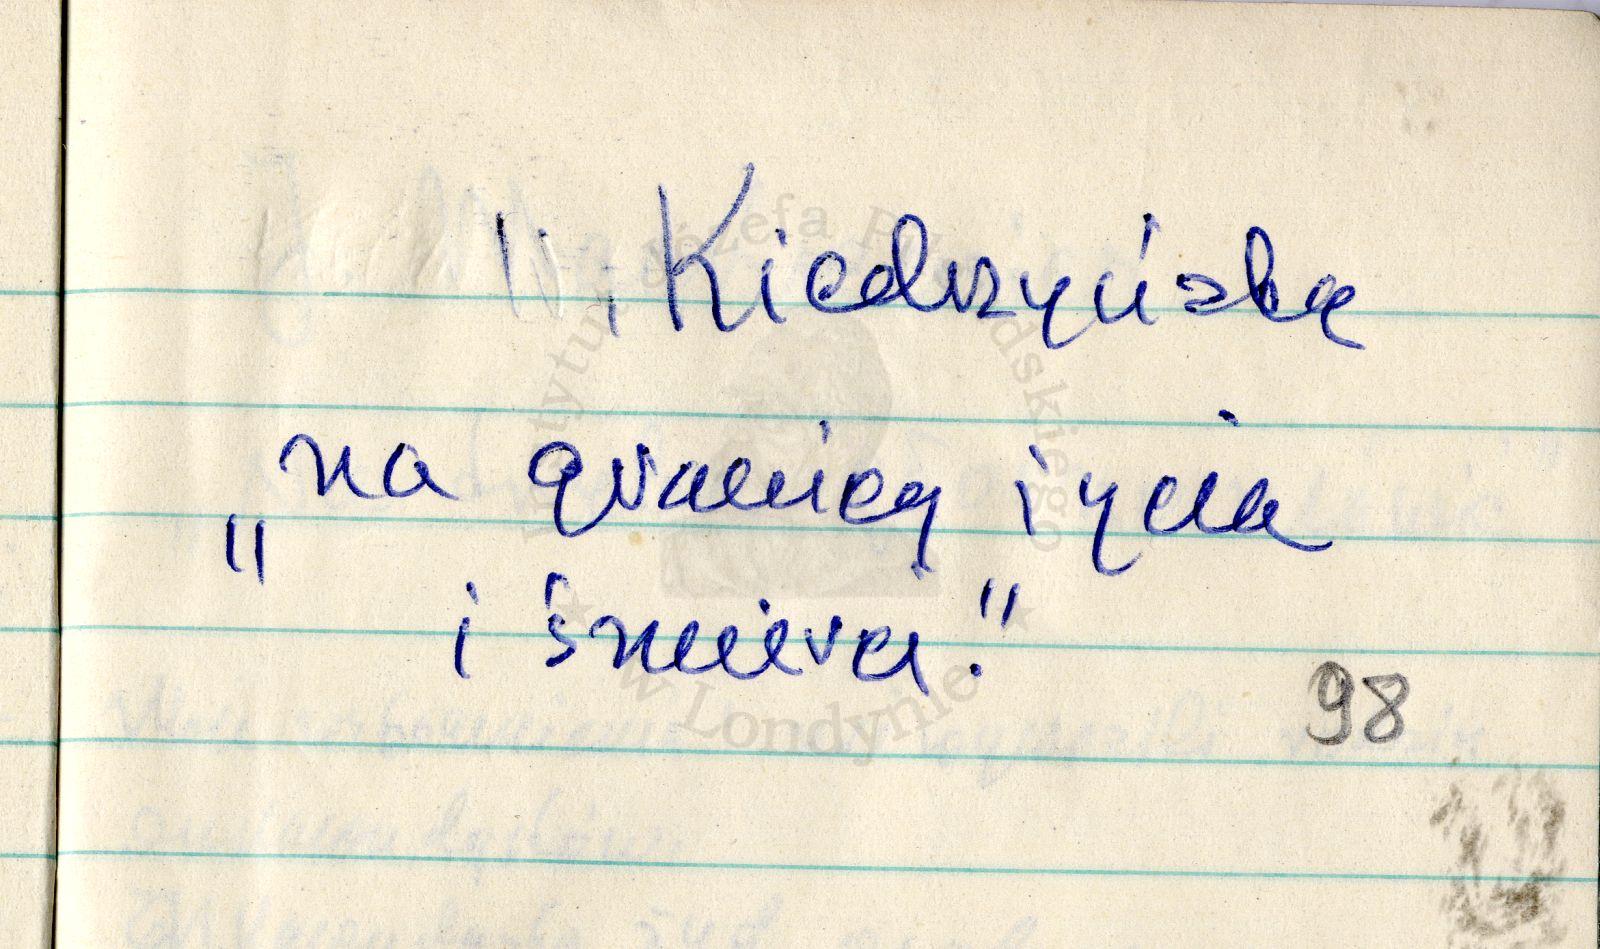 W. Kiedrzyńska
„na granicy życia
i śmierci."
98
Instytut Józefa Piłsudskiego
w Londynie